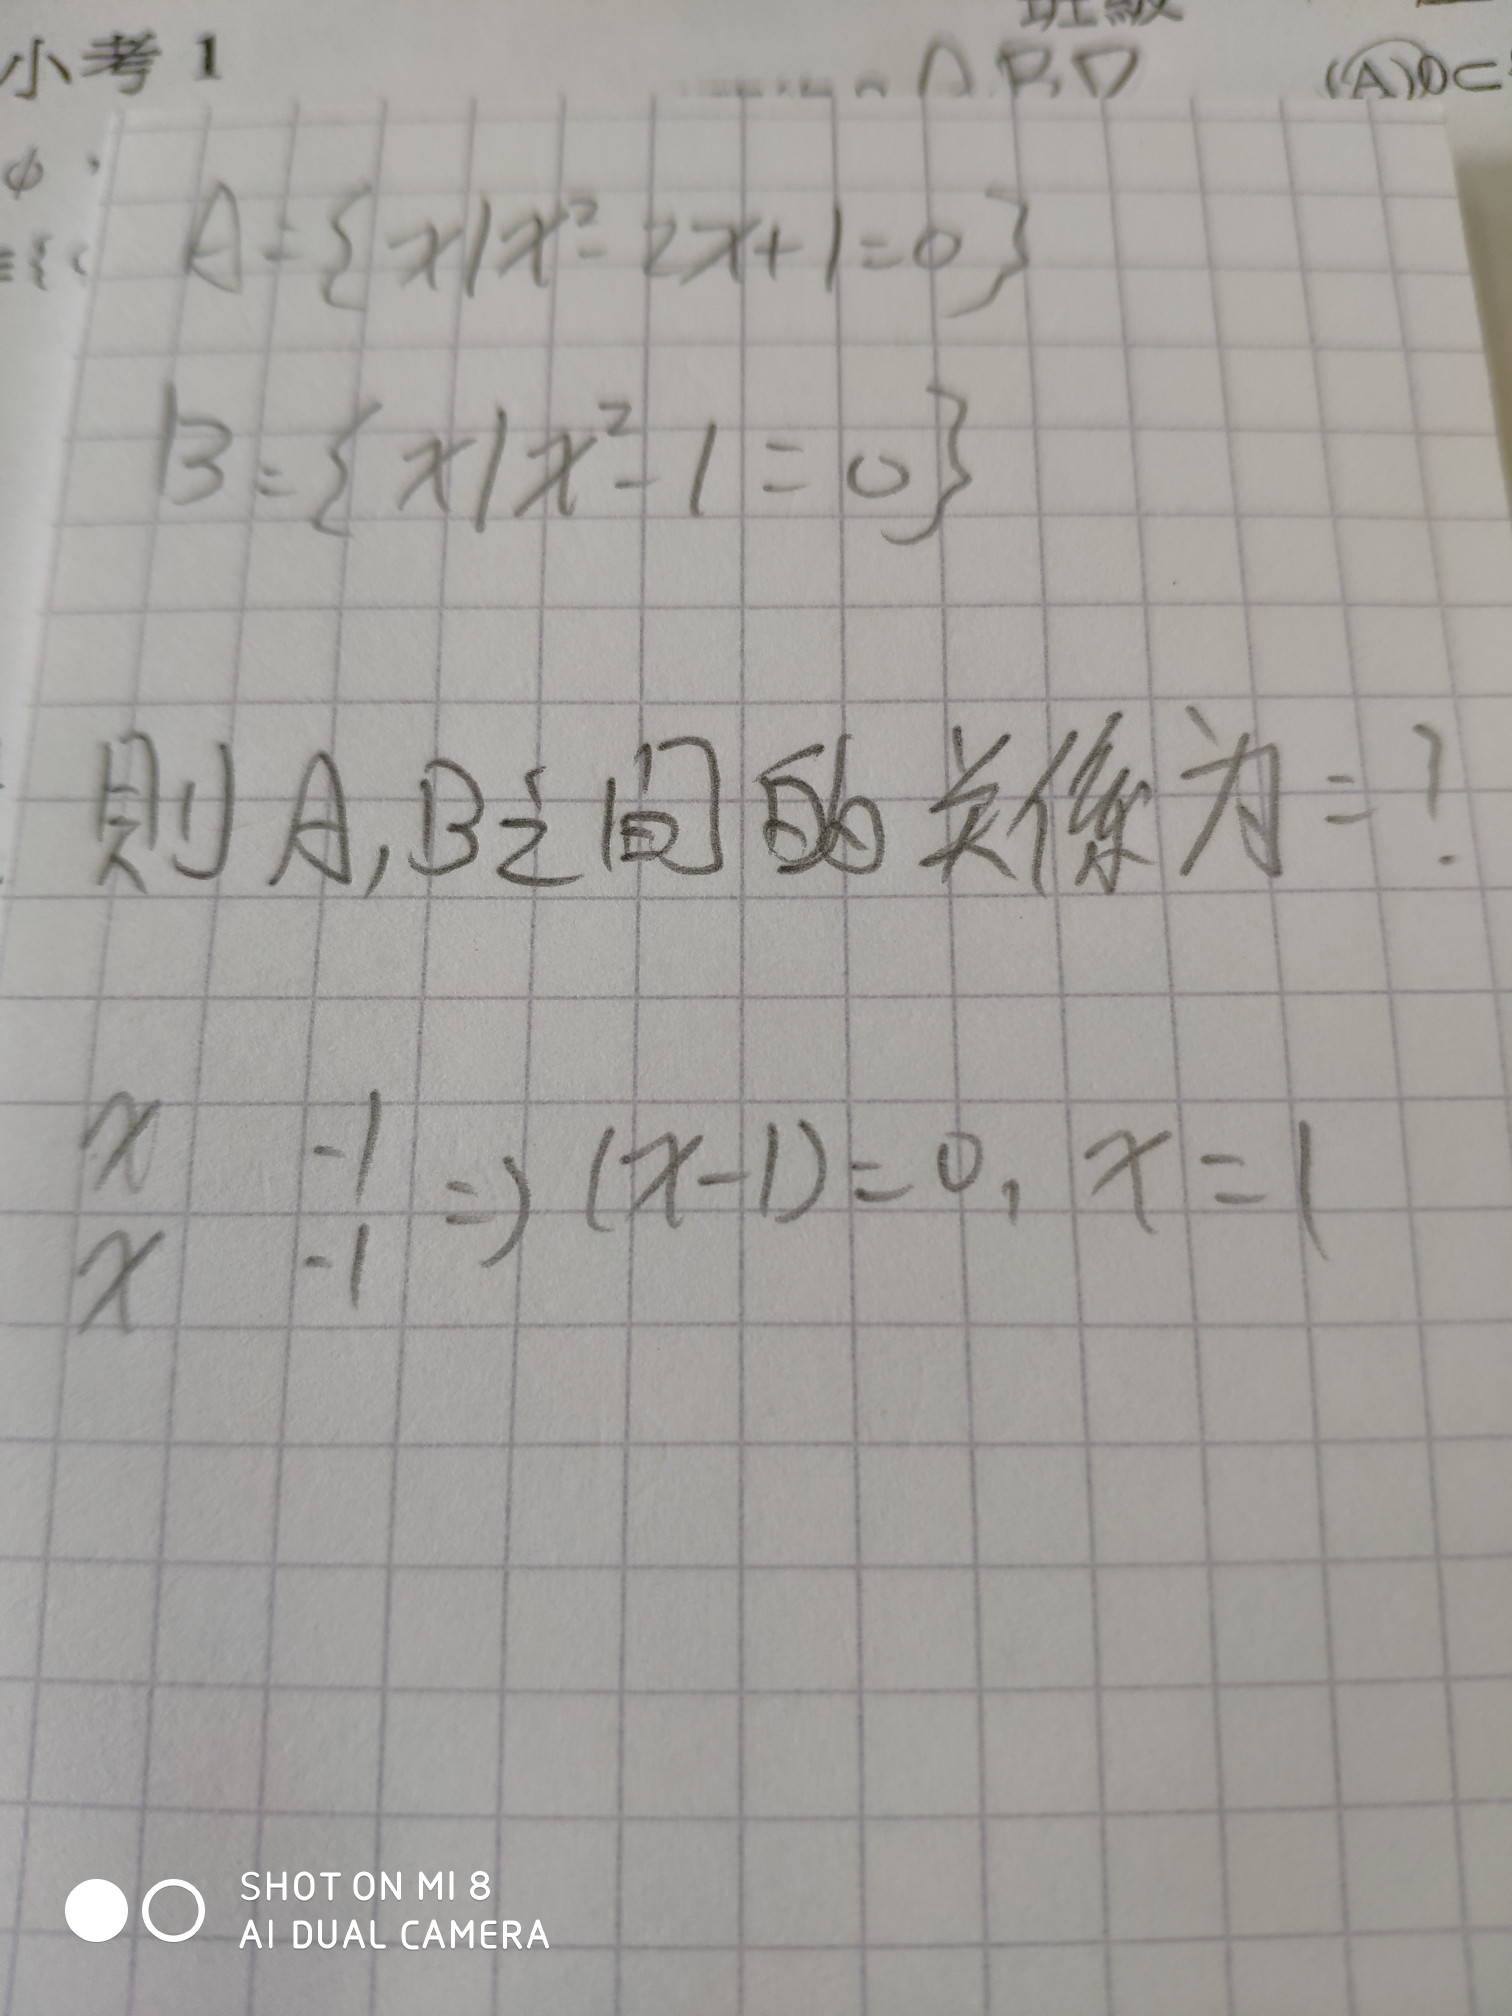 班級
小考 1
A B D
(A)0⊂
φ
A={x|x²-2x+1=0}
B={x|x²-1=0}
則A,B之间的关係为=?
x -1
x -1
=> (x-1)=0, x=1
SHOT ON MI 8
AI DUAL CAMERA